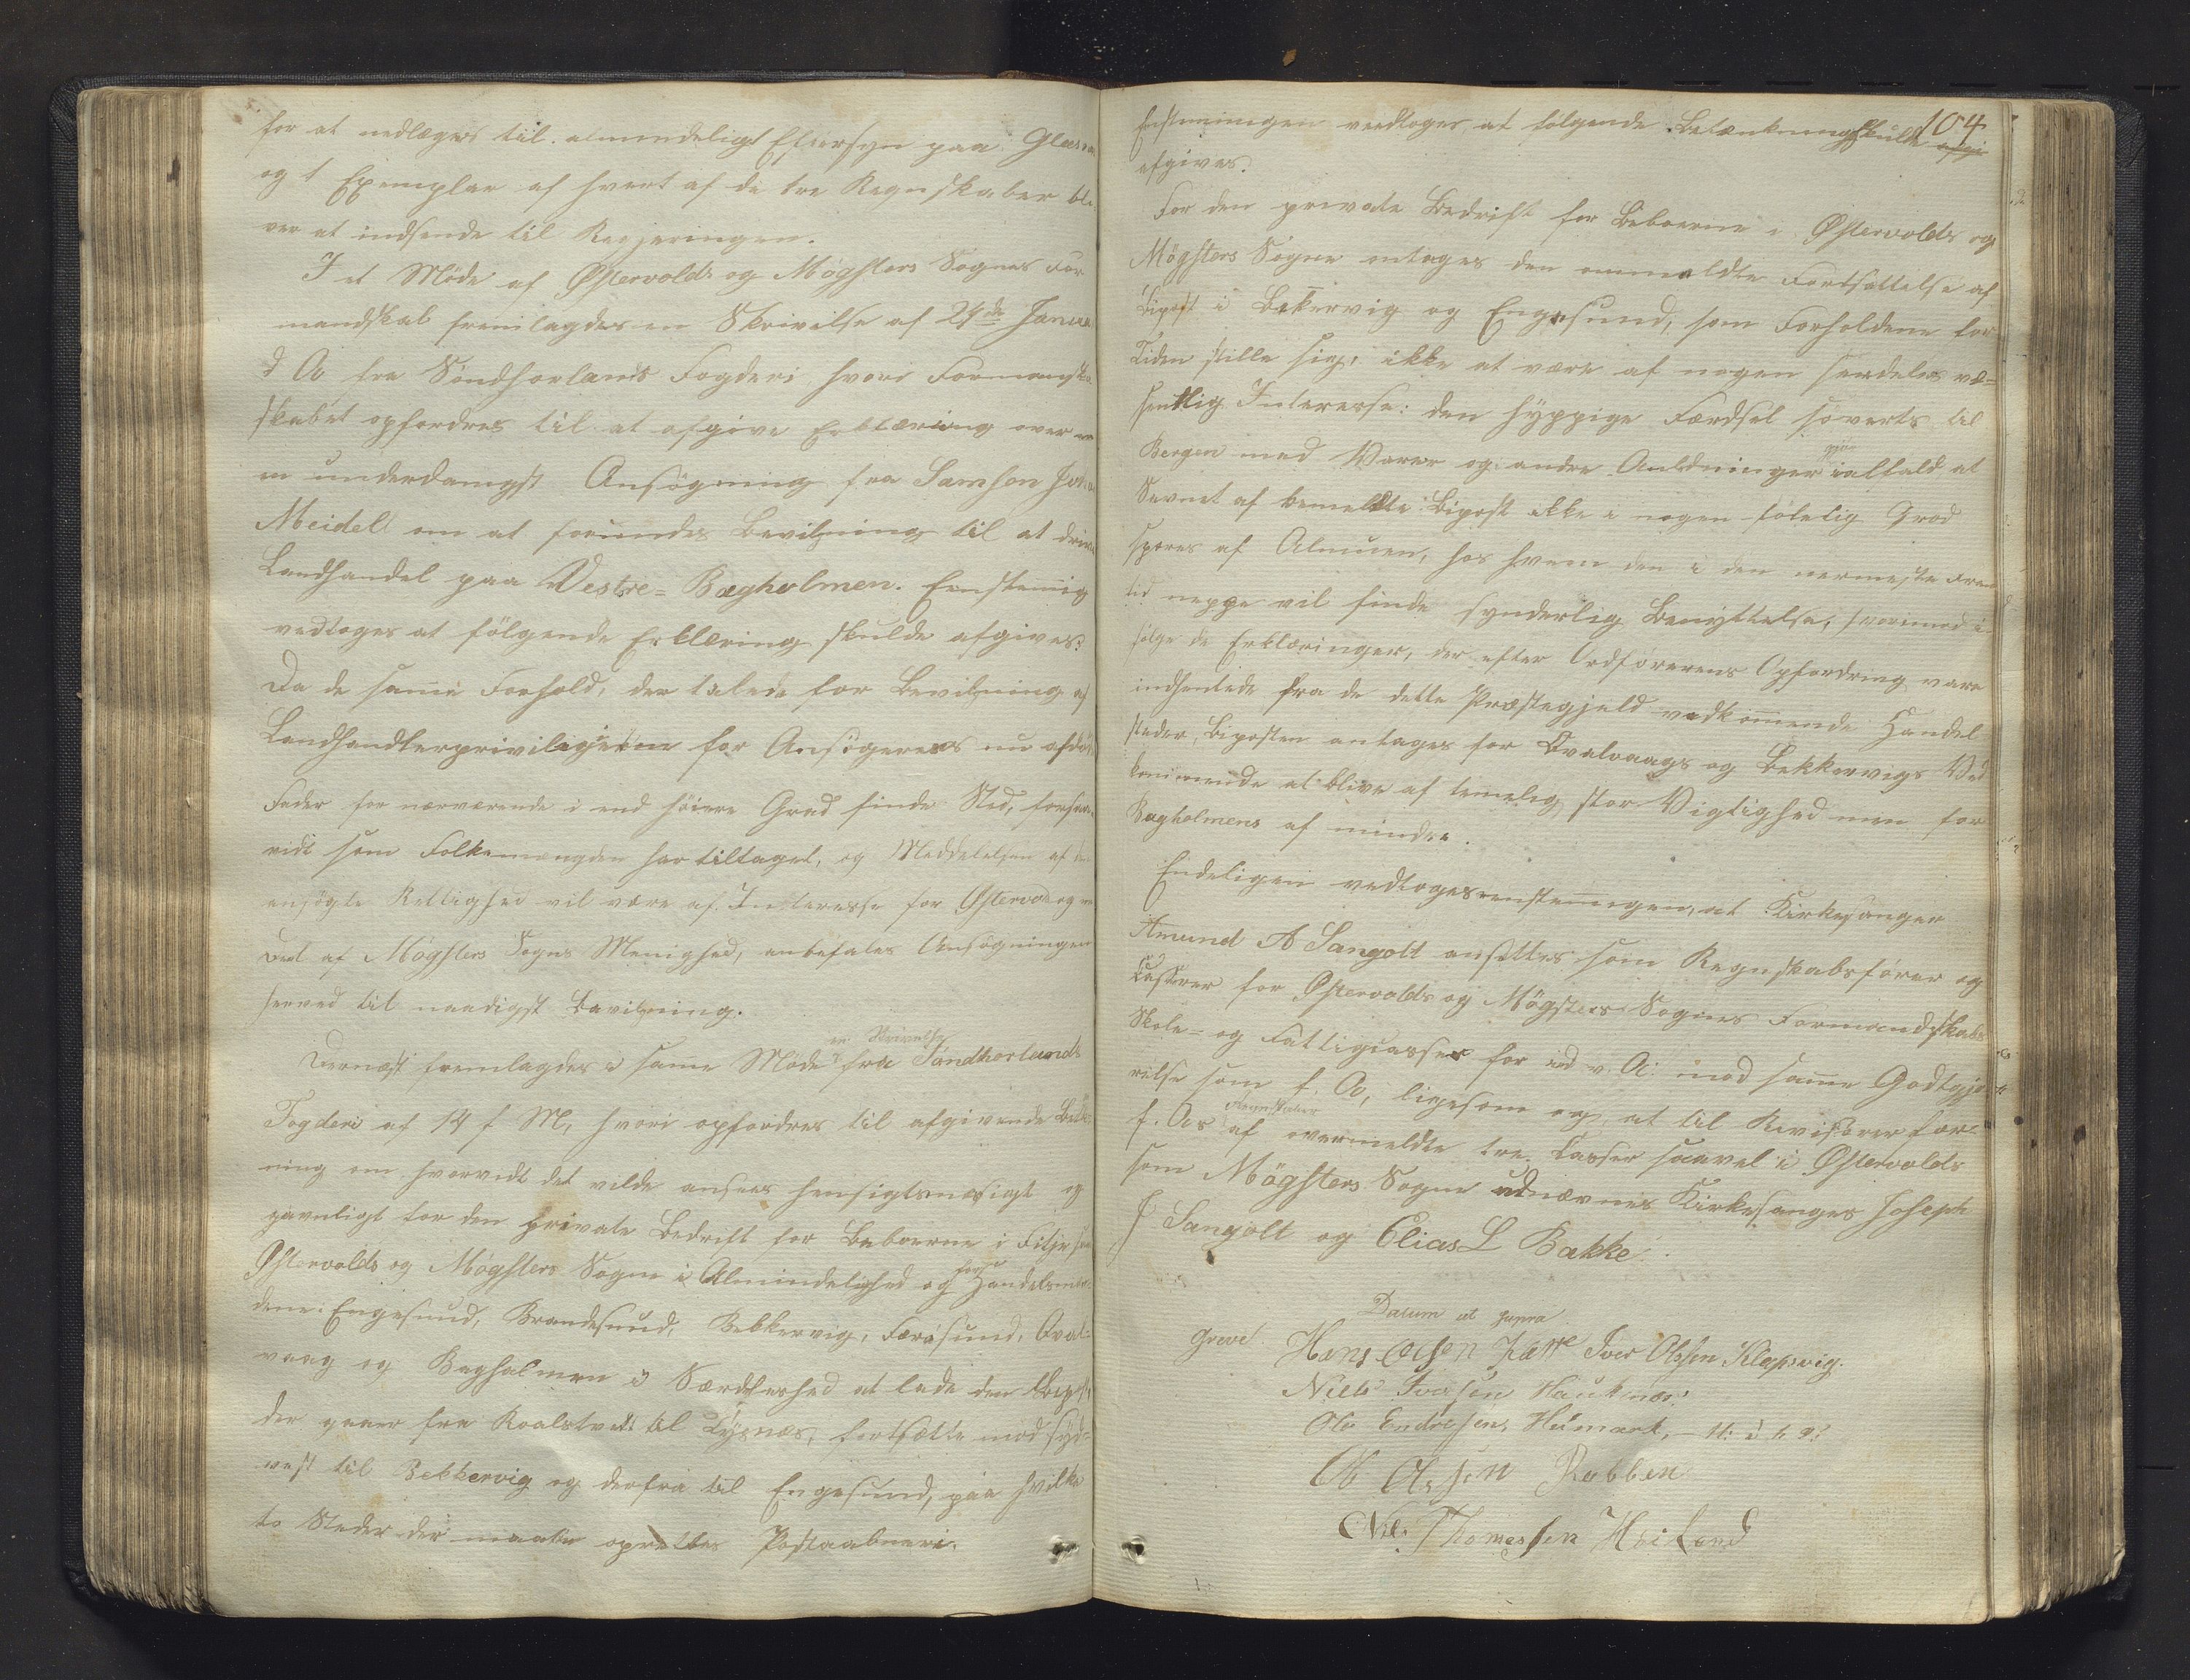 for at nedlægges til almindeligt Eftersyn paa
og 1 Exemplar af hvert af de tre Regnskaber bli-
ver at indsende til Regjeringen.
I et Møde af Østervolds og Møgsters Sognes For-
mandskab fremlagdes en Skrivelse af 24de Januar
d A fra Söndhorlands Fogderi hvori Formand-
skabet opfordres til at afgive Erklæring over en
underdanigst Ansøgning fra Samson
Meidell om at forundes Bevilgning til at drive
Landhandel paa Vestre-Bagholmen. Eenstemmig
vedtoges at følgende Erklæring skulde afgives:
Da de samme Forhold, der talede for Bevilgning af
Landhandlerprivilegierne for Ansøgerens nu afdøde
Fader for nærværende i end høiere Grad finde Sted, forsaa-
vidt som Folkemængden har tiltaget, og Meddelelsen af den
ansøgte Rettighed vil være af Interesse for Østervold og en
Deel af Møgsters Sogns Menighed, anbefales Ansøgningen
herved til naadigst Bevilgning.
Dernæst fremlagdes i samme Møde en Skrivelse fra Söndhorlands
Fogderi af 14 f M, hvori opfordres til afgivende Betænk-
ning om hvorvidt det vilde ansees hensigtsmæsigt og
gavnligt for den private Bedrift for Beboerne i Fitje
Østervolds og Møgsters Sogne i Almindelighed og for Handelsmæn-
dene: Engesund, Brandesund, Bekkervig, Færøsund, Qval-
vaag og Bagholmen i Særdeleshed at lade den Bipost
der gaaer fra Roalstvedt til Tysnæs, fortsætte mod Syd-
vest til Bekkervig og derfra til Engesund, paa hvilke
to Steder der maatte oprettes Postaabneri.
104
Enstemmigen vedtoges at følgende Betænkning skulde
afgives:
For den private Bedrift for Beboerne i Østervolds og
Møgsters Sogne antages den ommeldte Fortsættelse af
Bipost i Bekervig og Engesund, som Forholdene for
Tiden stille sig, ikke at være af nogen særdeles væ-
sentlig Interesse: den hyppige Færdsel søverts til
Bergen med Varer og andre Anledninger gjør ialfald, at
Savnet af bemeldte Bipost ikke i nogen følelig Grad
spores af Almuen, hos hvem den i den nærmeste Frem-
tid neppe vil finde synderlig Benyttelse; hvorimod i-
følge de Erklæringer, der efter Ordførerens Opfordring vare
indhentede fra de dette Præstegjeld vedkommende Handel-
steder, Biposten antages for Qvalvaags og Bekkervigs Ved-
kommende at blive af temelig stor Vigtighed men for
Bagholmens af mindre.
Endeligen vedtoges enstemmigen, at Kirkesanger
Amund A Sangolt ansættes som Regnskabsfører og
Casserer for Østervolds og Møgsters Sognes Formandskabs
Skole- og Fattigcasser for ind v. A. mod samme Godtgjø-
relse som f. A, ligesom og at til Revisorer for
f. As Regnskaber af ovenmeldte tre Casser saavel i Østervolds
som Møgsters Sogne udnævnes Kirkesanger Joseph
J Sangolt og Elias L Bakke.
Datum ut supra
Greve. Hans Olsen Iver Olsen Klepsvig.
Niels Iversen
Ole Endresen, Heimark,
Ole Olsen Rabben
Nils Thomassen